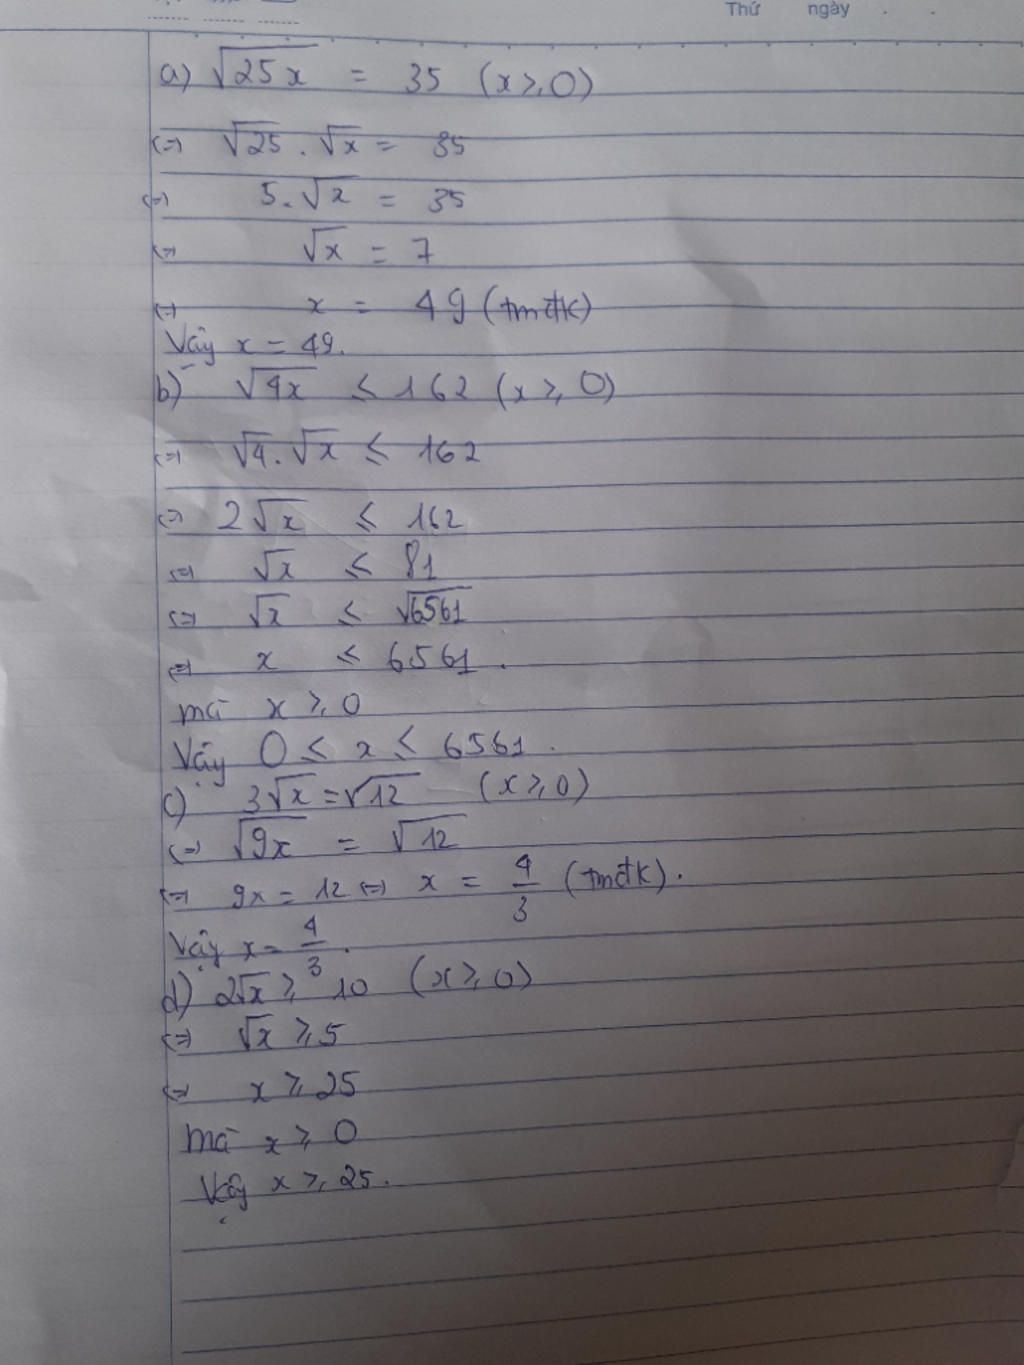 Thứ ngày . .
a) √25x = 35 (x ≥ 0)
<=> √25 . √x = 35
<=> 5.√x = 35
<=> √x = 7
<=> x = 49 (tmđk)
Vậy x = 49.
b) √4x ≤ 162 (x ≥ 0)
<=> √4.√x ≤ 162
<=> 2√x ≤ 162
<=> √x ≤ 81
<=> √x ≤ √6561
<=> x ≤ 6561.
mà x ≥ 0
Vậy 0 ≤ x ≤ 6561.
c) 3√x = √12 (x ≥ 0)
<=> √9x = √12
<=> 9x = 12 <=> x = 4/3 (tmđk).
Vậy x = 4/3.
d) 2√x ≥ 10 (x ≥ 0)
<=> √x ≥ 5
<=> x ≥ 25
mà x ≥ 0
Vậy x ≥ 25.